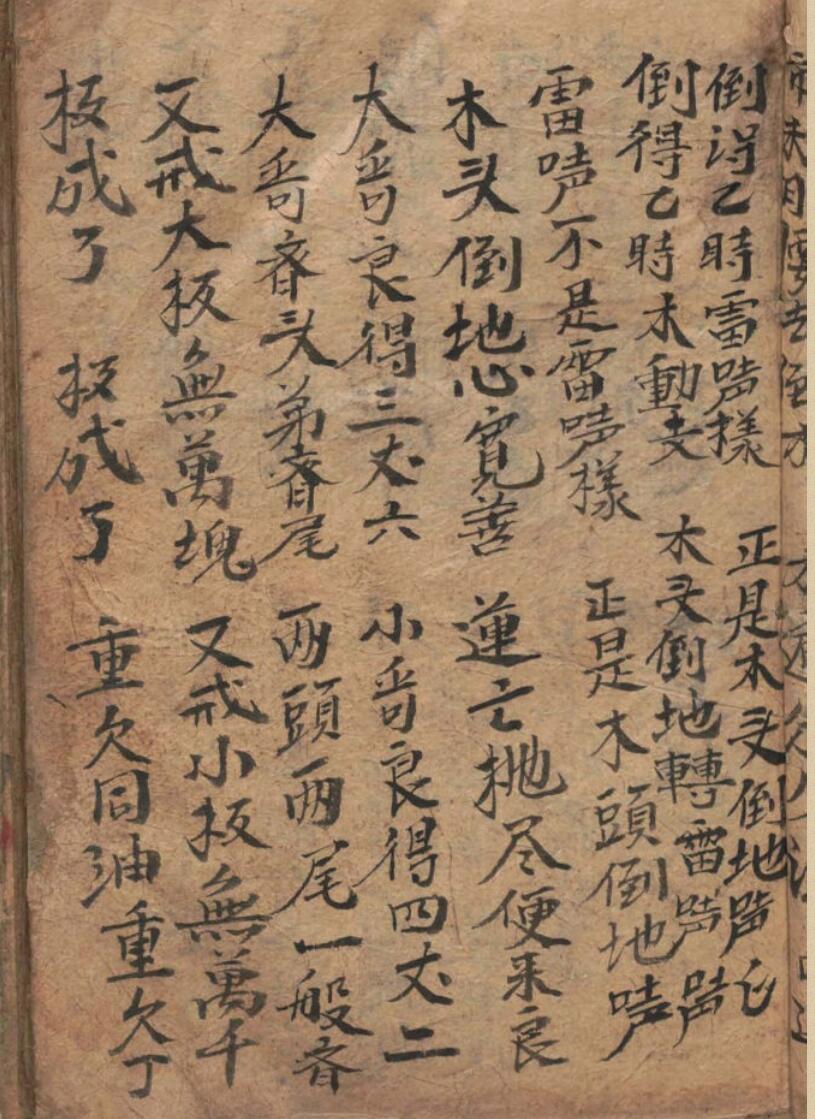 倒得乙時雷唠樣　正是木头倒地唠
倒得乙時木動　木头倒地轉雷唠唠
雷唠不是雷唠樣　正是木頭倒地唠
木头倒地心寬善　蓮亡抛尽便来良
大哥良得三丈六　小哥良得四丈二
大哥斉头弟斉尾　两頭两尾一般斉
又戒大板無萬塊　又戒小板無萬千
板成了　板成了　重欠同油重欠丁